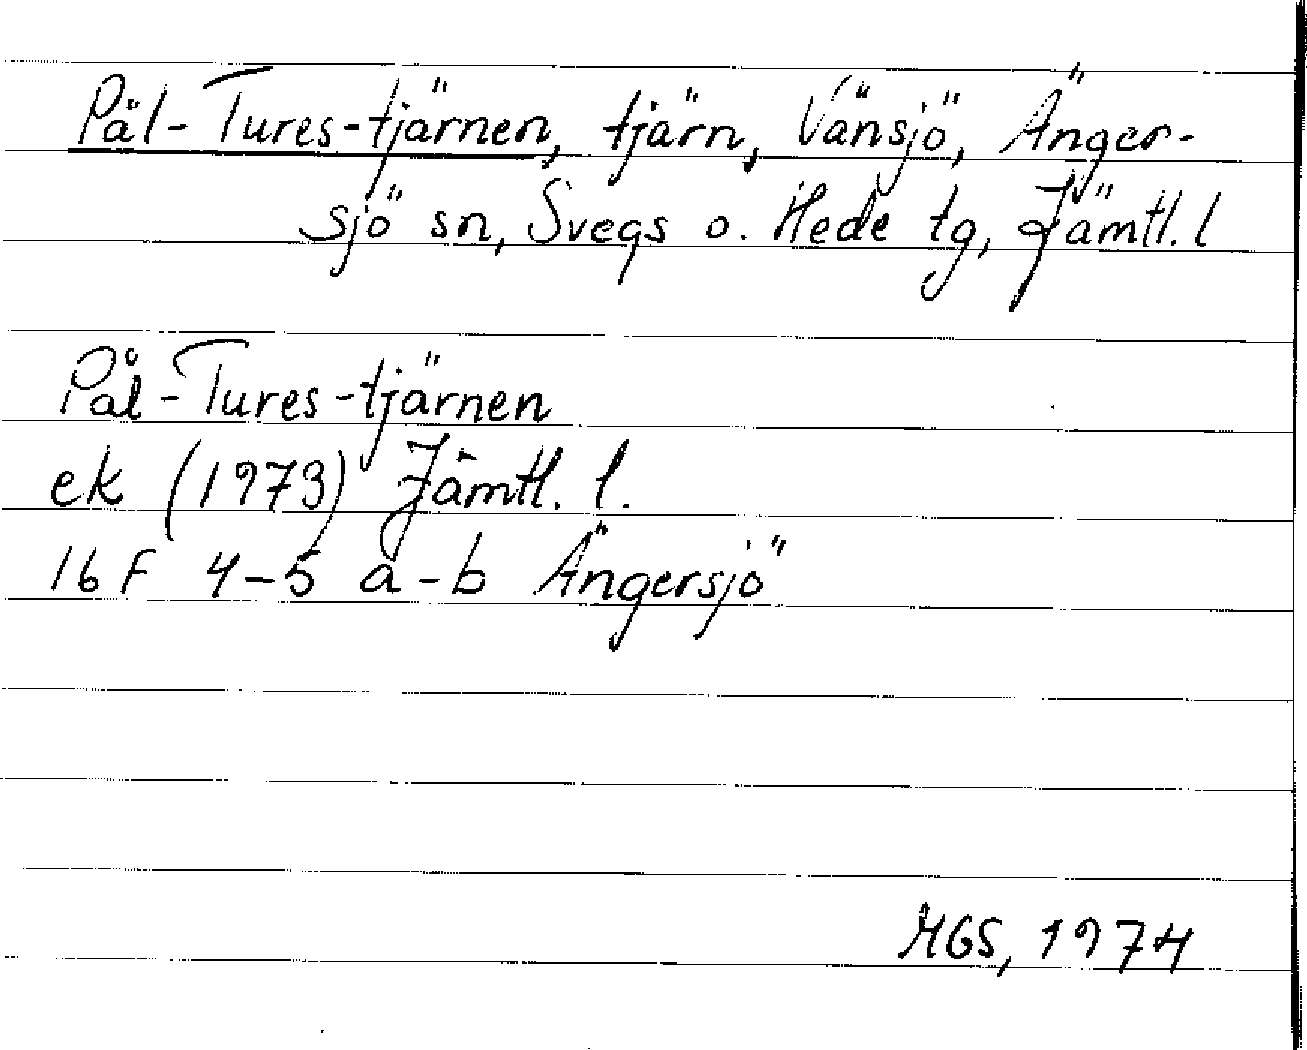 Pål-Tures-tjärnen, tjärn, Vänsjö, Änger-
sjö sn, Svegs o. Hede tg, Jämtl. l
Pål-Tures-tjärnen
ek (1973) Jämtl. l.
16F 4-5 a-b Ängersjö
MGS, 1974